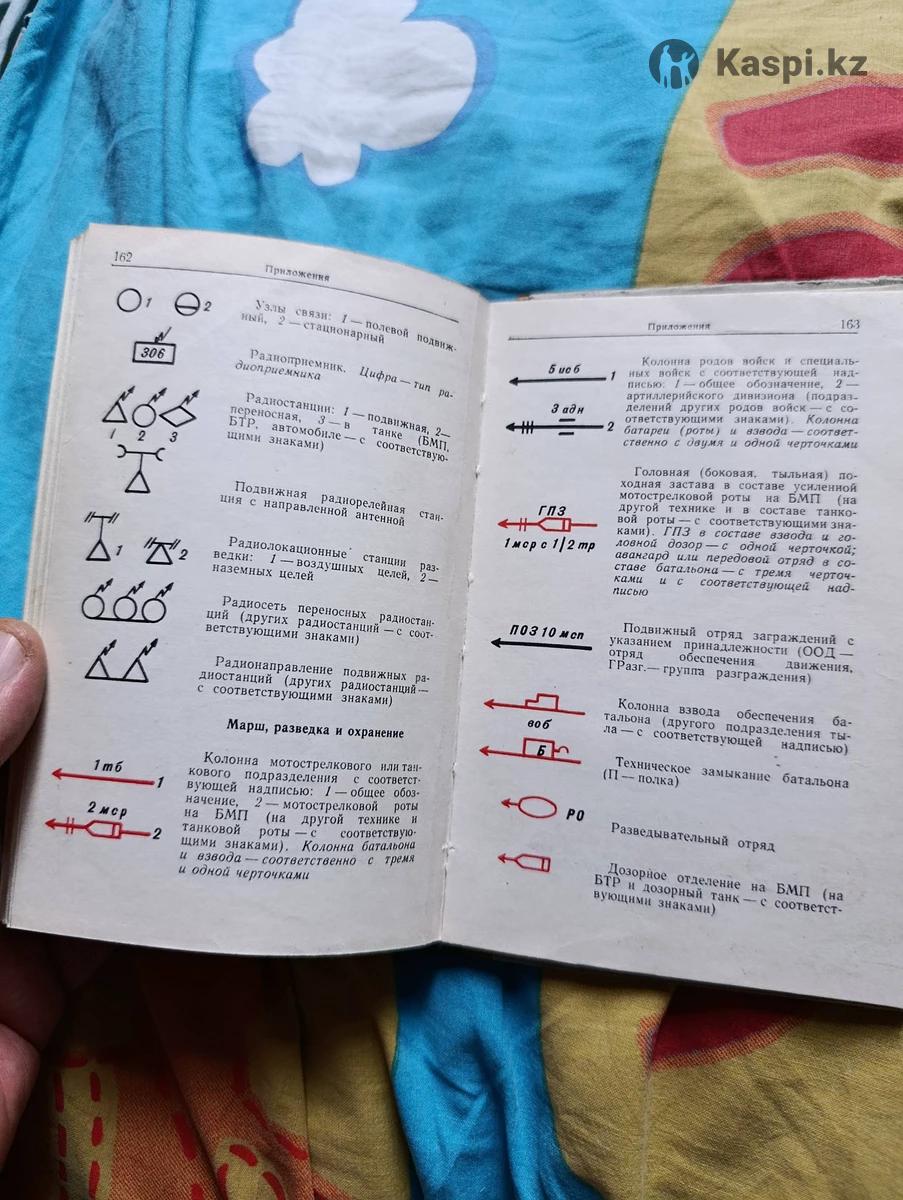 Kaspi.kz
162
Приложения
1 2
Узлы связи: 1 — полевой подвиж-
ный, 2 — стационарный
306
Радиоприемник. Цифра — тип ра-
диоприемника
Радиостанции: 1 — подвижная, 2 —
переносная, 3 — в танке (БМП,
БТР, автомобиле — с соответствую-
щими знаками)
1 2 3
Подвижная радиорелейная стан-
ция с направленной антенной
1 2
Радиолокационные станции раз-
ведки: 1 — воздушных целей, 2 —
наземных целей
Радиосеть переносных радиостан-
ций (других радиостанций — с соот-
ветствующими знаками)
Радионаправление подвижных ра-
диостанций (других радиостанций —
с соответствующими знаками)
Марш, разведка и охранение
1 тб
1
2 мср
2
Колонна мотострелкового или тан-
кового подразделения с соответст-
вующей надписью: 1 — общее обоз-
начение, 2 — мотострелковой роты
на БМП (на другой технике и
танковой роты — с соответствую-
щими знаками). Колонна батальона
и взвода — соответственно с тремя
и одной черточками
Приложения
163
5 исб
1
3 адн
2
Колонна родов войск и специаль-
ных войск с соответствующей над-
писью: 1 — общее обозначение, 2 —
артиллерийского дивизиона (подраз-
делений других родов войск — с со-
ответствующими знаками). Колонна
батареи (роты) и взвода — соответ-
ственно с двумя и одной черточками
ГПЗ
1 мср с 1/2 тр
Головная (боковая, тыльная) по-
ходная застава в составе усиленной
мотострелковой роты на БМП (на
другой технике и в составе танко-
вой роты — с соответствующими зна-
ками). ГПЗ в составе взвода и го-
ловной дозор — с одной черточкой;
авангард или передовой отряд в со-
ставе батальона — с тремя черточ-
ками и с соответствующей над-
писью
ПОЗ 10 мсп
Подвижный отряд заграждений с
указанием принадлежности (ООД —
отряд обеспечения движения,
ГРазг.— группа разграждения)
воб
Колонна взвода обеспечения ба-
тальона (другого подразделения ты-
ла — с соответствующей надписью)
Б
Техническое замыкание батальона
(П — полка)
РО
Разведывательный отряд
Дозорное отделение на БМП (на
БТР и дозорный танк — с соответст-
вующими знаками)